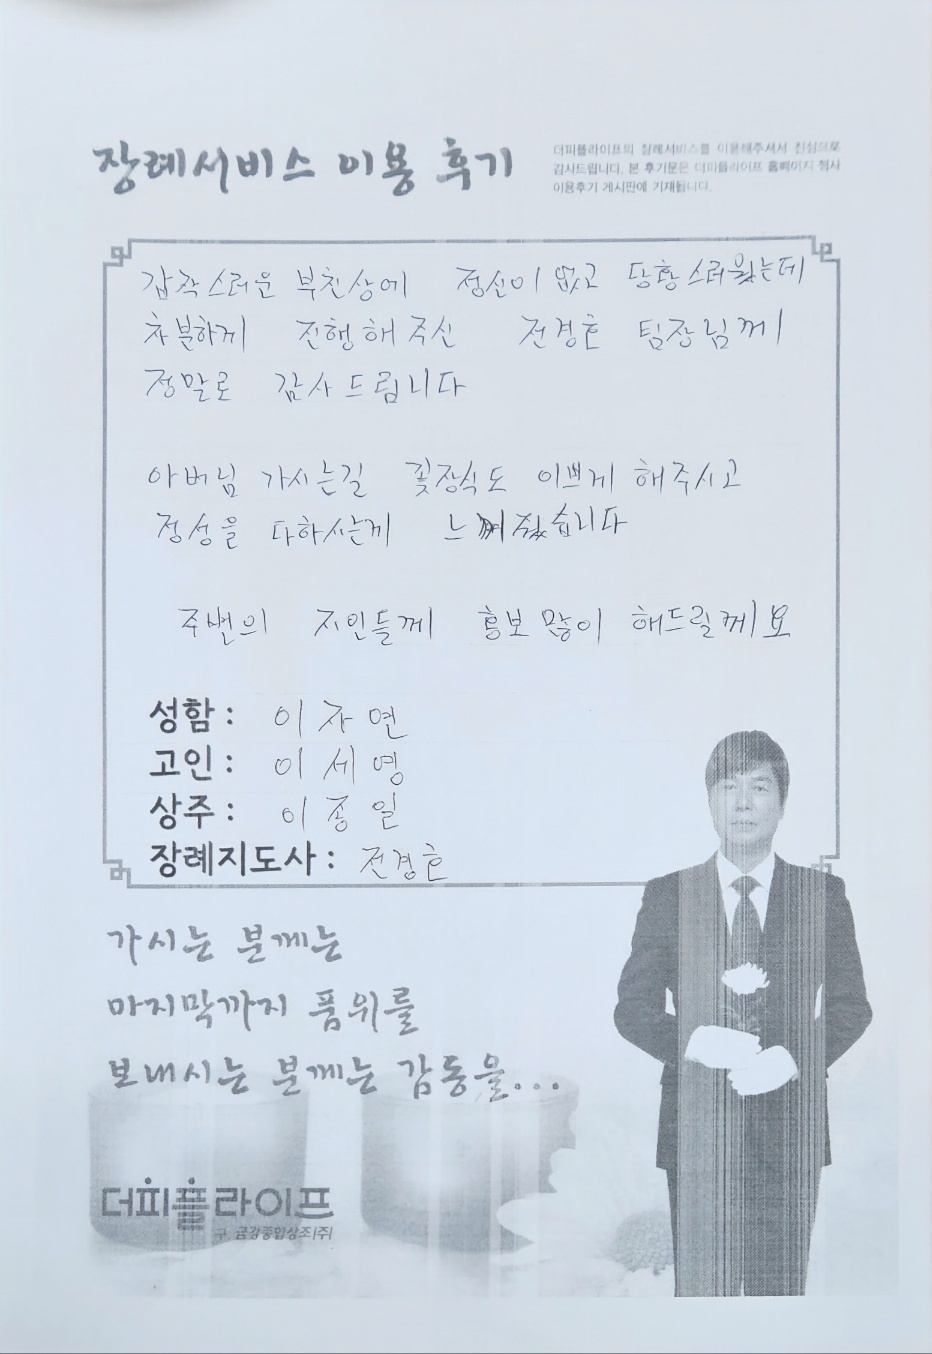 장례서비스 이용 후기
더피플라이프의 장례서비스를 이용해주셔서 진심으로
감사드립니다. 본 후기문은 더피플라이프 홈페이지 행사
이용후기 게시판에 기재됩니다.
갑작스러운 부친상에 정신이 없고 당황스러웠는데
차분하게 진행해주신 전경호 팀장님께
정말로 감사드립니다
아버님 가시는길 꽃장식도 이쁘게 해주시고
정성을 다하시는게 느껴졌습니다
주변의 지인들께 홍보 많이 해드릴께요
성함 : 이자연
고인 : 이세영
상주 : 이종일
장례지도사 : 전경호
가시는 분께는
마지막까지 품위를
보내시는 분께는 감동을...
더피플라이프
구. 금강종합상조(주)